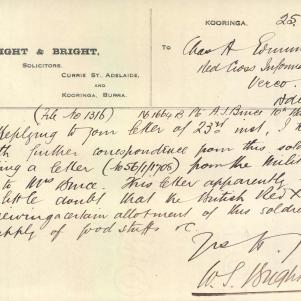 KOORINGA, 25
IGHT & BRIGHT,
SOLICITORS.
CURRIE ST. ADELAIDE,
AND
KOORINGA, BURRA.
TO Chas A Edmun
Red Cross Inform
Verco
Ade
(File No 1316) No 1664 B Pte A. J. Bruce 10th
Replying to your letter of 23rd inst. I
further correspondence from this sol
ing a letter (No 56/1/1706) from the Milit
to Mrs Bruce. This letter apparently
little doubt that the British Red X
receiving a certain allotment of this soldier
supply of food stuffs &c.
Yrs tr
W. S. Bright